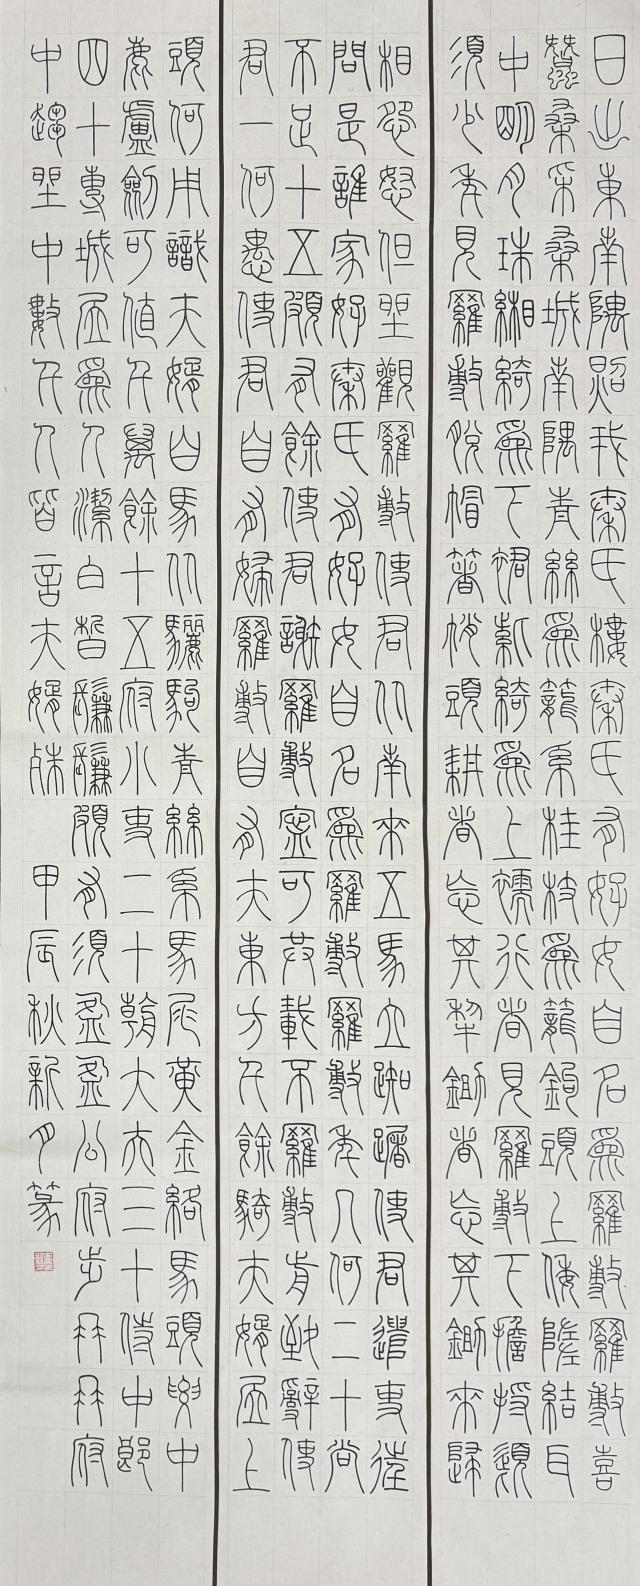 日出東南隅照我秦氏樓秦氏有好女自名為羅敷羅敷喜
蠶桑采桑城南隅青絲為籠系桂枝為籠鉤頭上倭墮結耳
中明月珠緗綺為下裙紫綺為上襦行者見羅敷下擔捋髭
須少年見羅敷脫帽著帩頭耕者忘其犁鋤者忘其鋤來歸
相怨怒但坐觀羅敷使君從南來五馬立踟躕使君遣吏往
問是誰家好秦氏有好女自名為羅敷羅敷年幾何二十尚
不足十五頗有餘使君謝羅敷寧可共載不羅敷前致辭使
君一何愚使君自有婦羅敷自有夫東方千餘騎夫婿居上
頭何用識夫婿白馬從驪駒青絲系馬尾黃金絡馬頭腰中
鹿盧劍可值千萬餘十五府小吏二十朝大夫三十侍中郎
四十專城居為人潔白皙鬑鬑頗有須盈盈公府步冉冉府
中趨坐中數千人皆言夫婿殊 甲辰秋新月篆